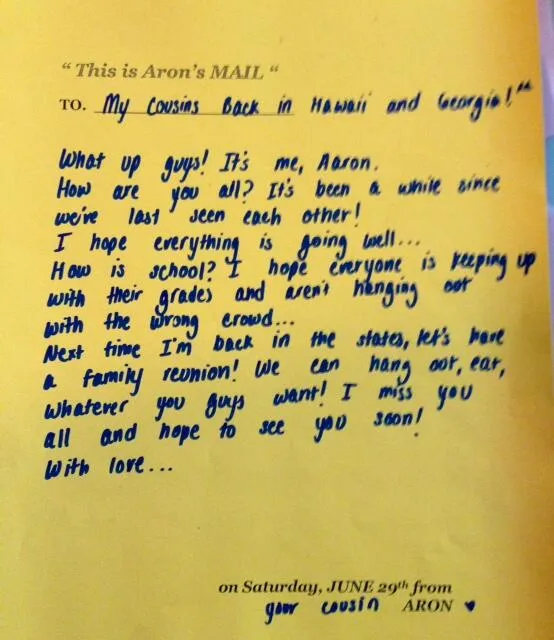 “ This is Aron's MAIL “
TO. My Cousins Back in Hawaii and Georgia! ““
What up guys! It's me, Aaron.
How are you all? It's been a while since
we've last seen each other!
I hope everything is going well...
How is school? I hope everyone is keeping up
with their grades and aren't hanging out
with the wrong crowd...
Next time I'm back in the states, let's have
a family reunion! We can hang out, eat,
whatever you guys want! I miss you
all and hope to see you soon!
With love...
on Saturday, JUNE 29th from
your cousin ARON ♥